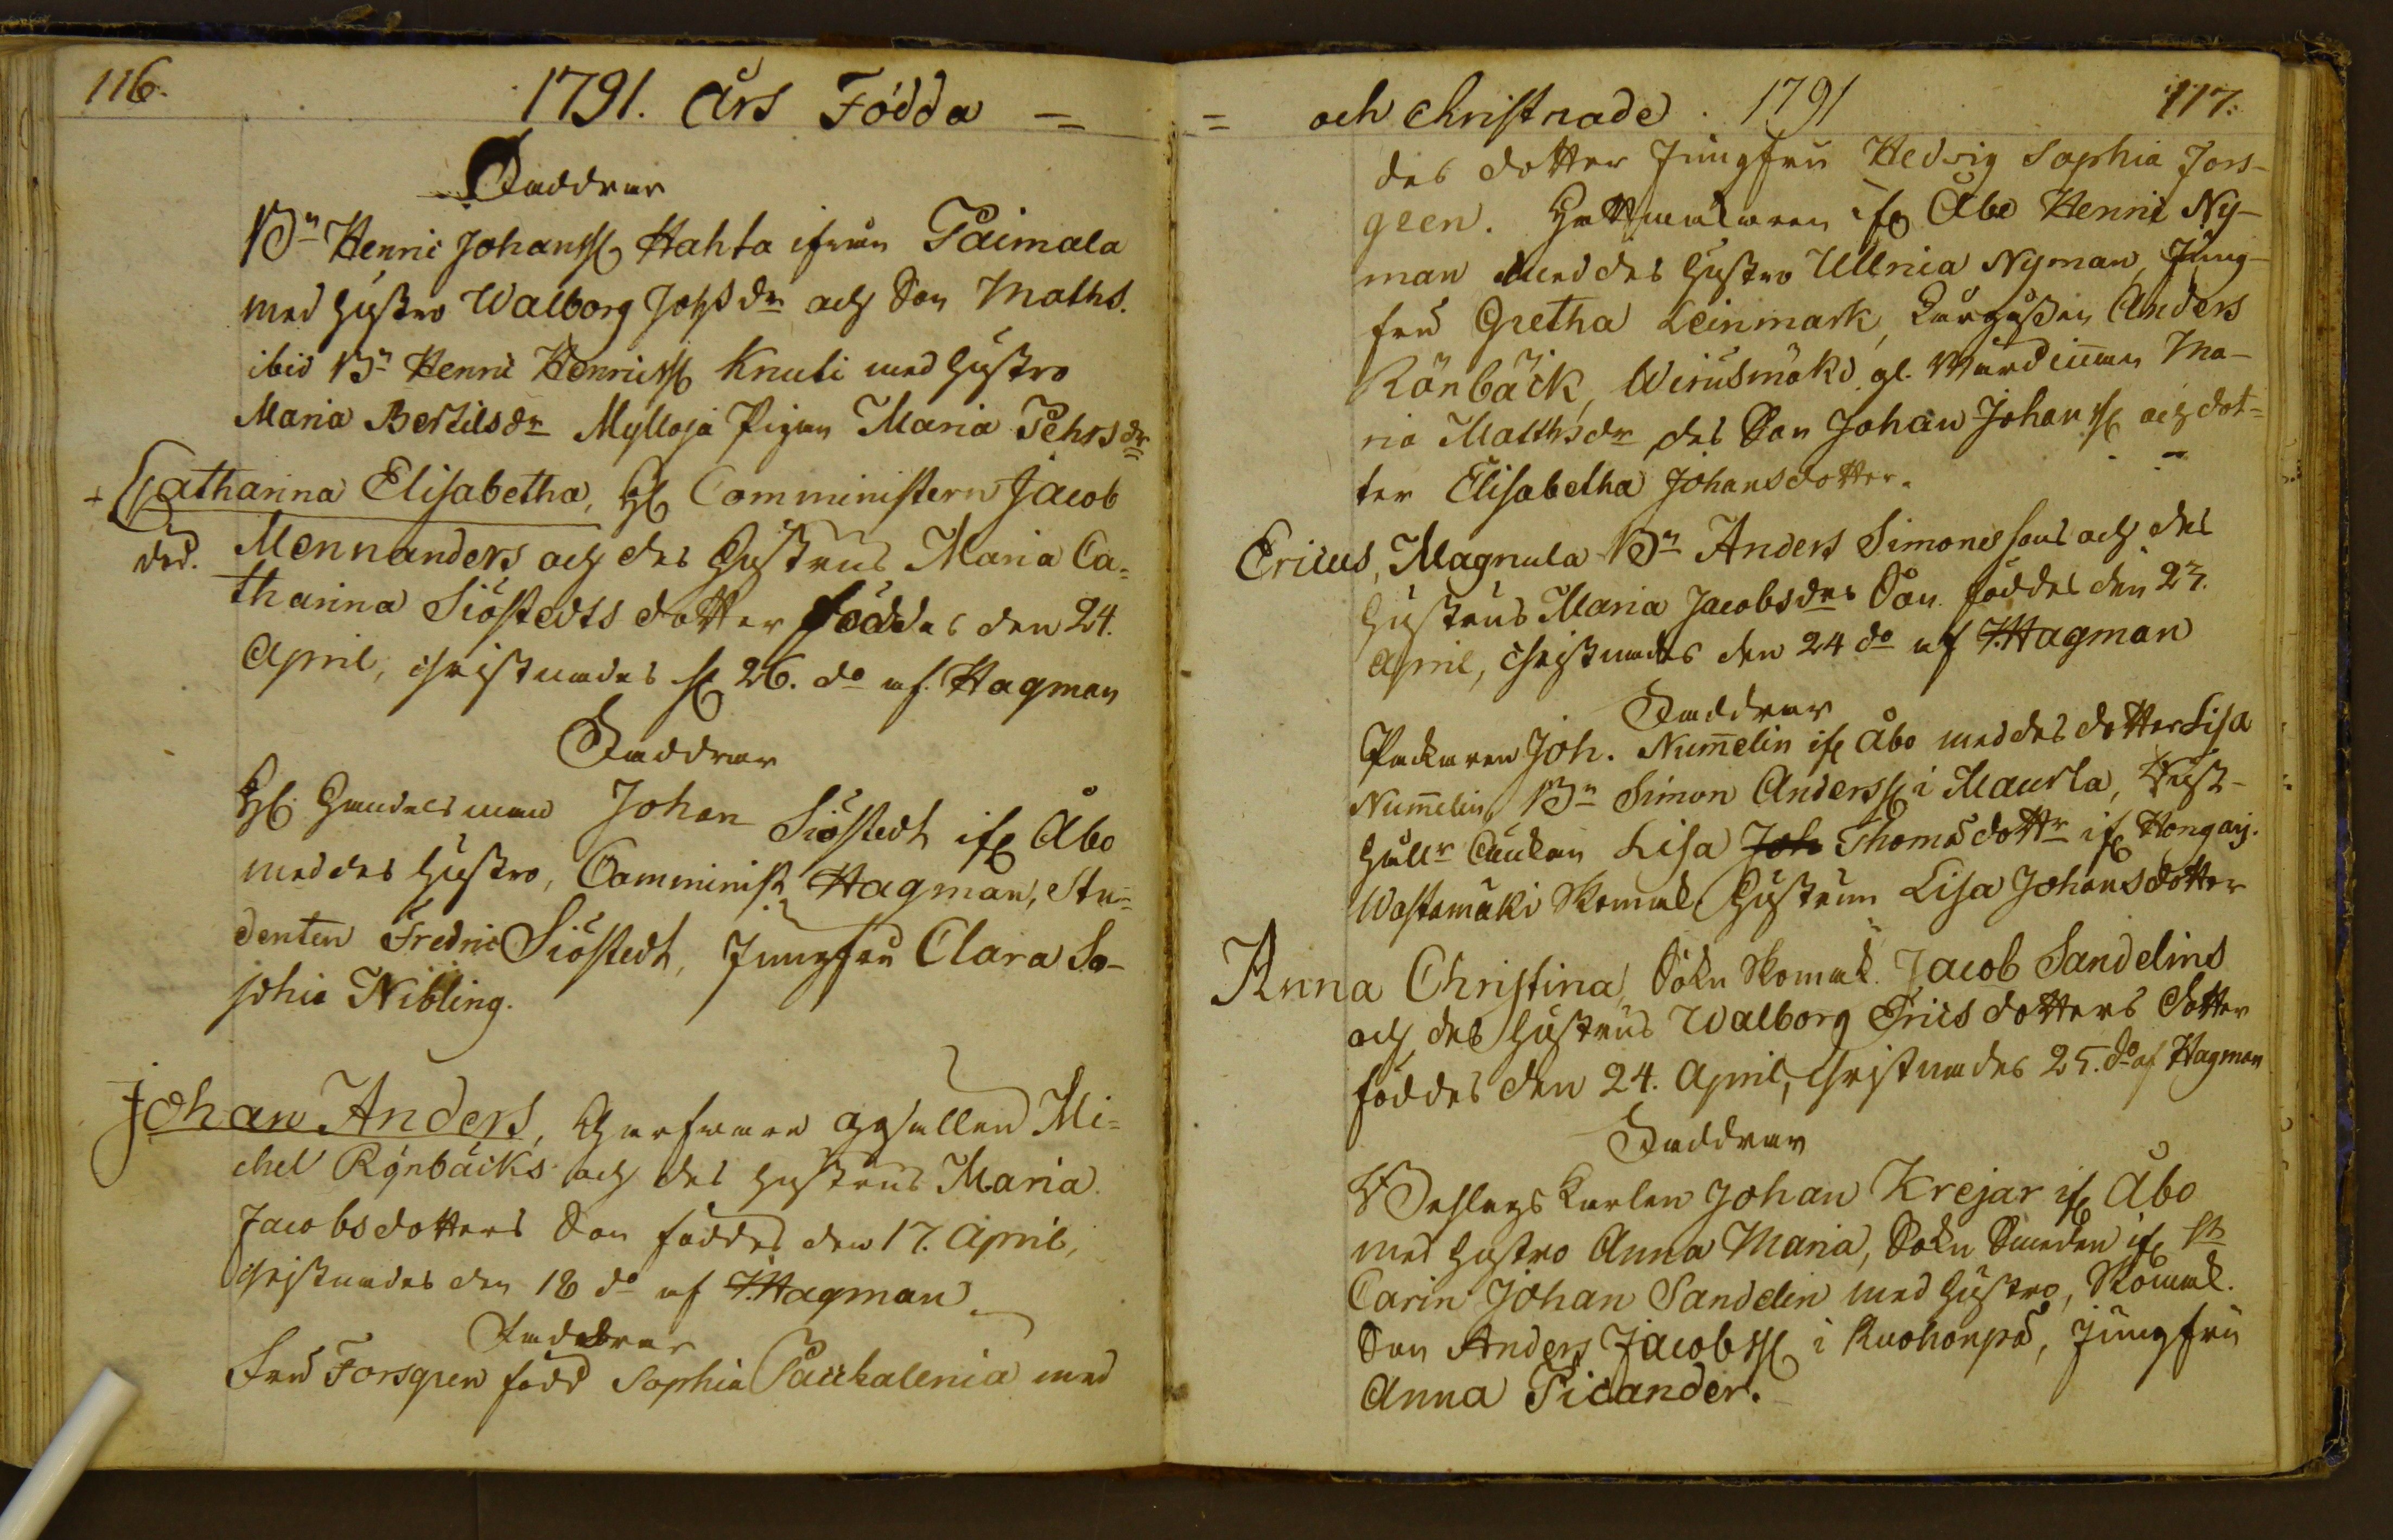 116.
1791. Års Födda =
Faddrar
Bn Henric Johanss. Hahta ifrån Paimala
med hustro Walborg Johsdr och Son Maths.
ibid Bn Henric Henricss. Knuti med hustro
Maria Bertilsdr Mylloja Pigan Maria Pehrsdr
+ Catharina Elisabetha, Hr Comministern Jacob
död. Mennanders och des hustrus Maria Ca=
tharina Siöstedts dotter föddes den 24.
April, christnades d. 26. do af Hagman
Faddrar
Hr Handelsman Johan Siöstedt ifr. Åbo
med des hustro, Comminist. Hagman, Stu=
denten Fredric Siöstedt, Jungfru Clara So-
phia Nibling.
Johan Anders, Garfware gesällen Mi=
chel Rönbäcks och des hustrus Maria
Jacobsdotters Son föddes den 17. April,
christnades den 18 do af J. Hagman
Faddrar
Fru Forsgren född Sophia Pacchalenia med
= och Christnade. 1791
117.
des dotter Jungfru Hedvig Sophia Fors-
green. Hattmakaren ifr. Åbo Henric Ny-
man med des hustro Ullrica Nyman, Jung-
fru Gretha Leinmark, Anders
Rönbäck, Wirusmäki gl. Wärdinnan Ma-
ria Matthsdr, des Son Johan Johanss. och dot=
ter Elisabetha Johansdotter.
Ericus, Magnula Bn Anders Simonssons och des
hustrus Maria Jacobsdrs Son föddes den 23.
April, christnades den 24 do af J. Hagman
Faddrar
Packaren Joh. Numelin ifr. Åbo med des dotter Lisa
Numelin, Bn Simon Anderss. i Maurla,
Lisa Joh Thomsdottr ifr. Hongaij.
Wastamäki Skomak. Hustrun Lisa Johansdotter
Anna Christina, Sokn Skomak. Jacob Sandelins
och des hustrus Walborg Ericsdotters dotter
föddes den 24. April, christnades 25. do af Hagman
Faddrar
Beslags Karlen Johan Krejar ifr. Åbo
med hustro Anna Maria, Sokn Smeden ifr. St
Carin Johan Sandelin med hustro, Skomak.
Son Anders Jacobss. i Ruohonpä, Jungfru
Anna Picander.